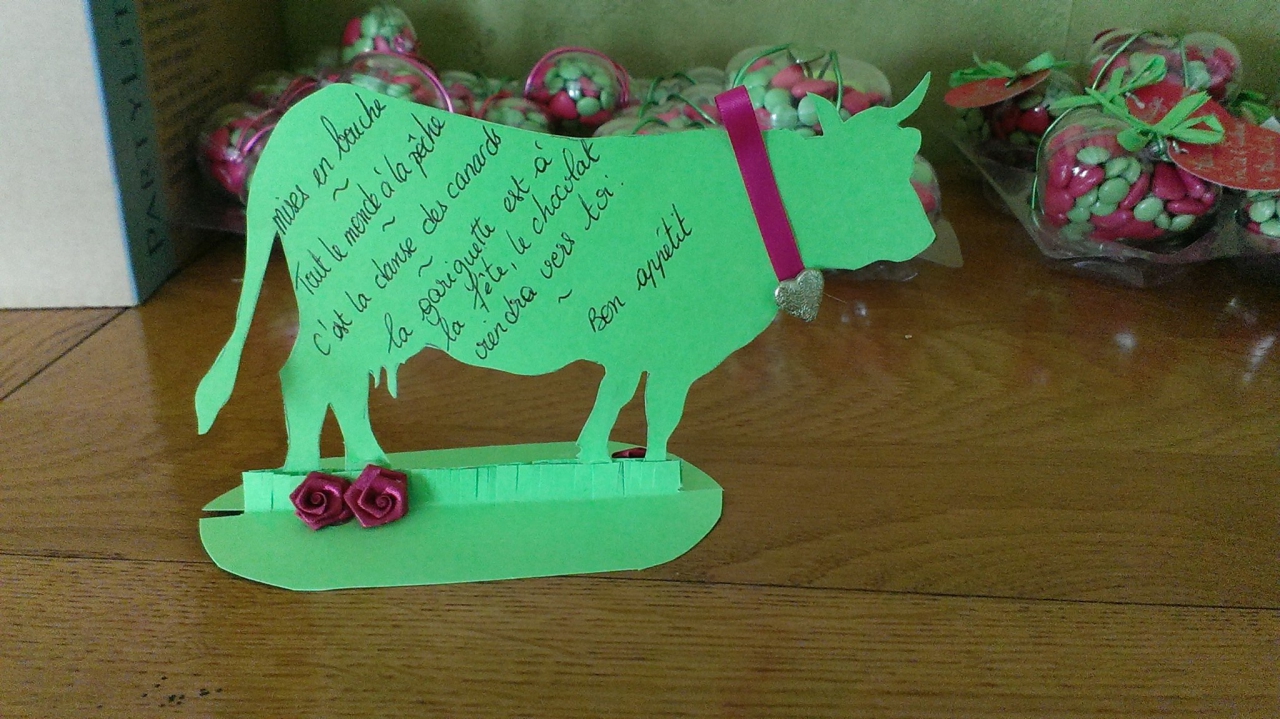 mises en bouche
~
Tout le monde à la pêche
~
c'est la danse des canards
~
la gariguette est à
la fête, le chocolat
viendra vers toi.
~
Bon appétit
PARTY LIT